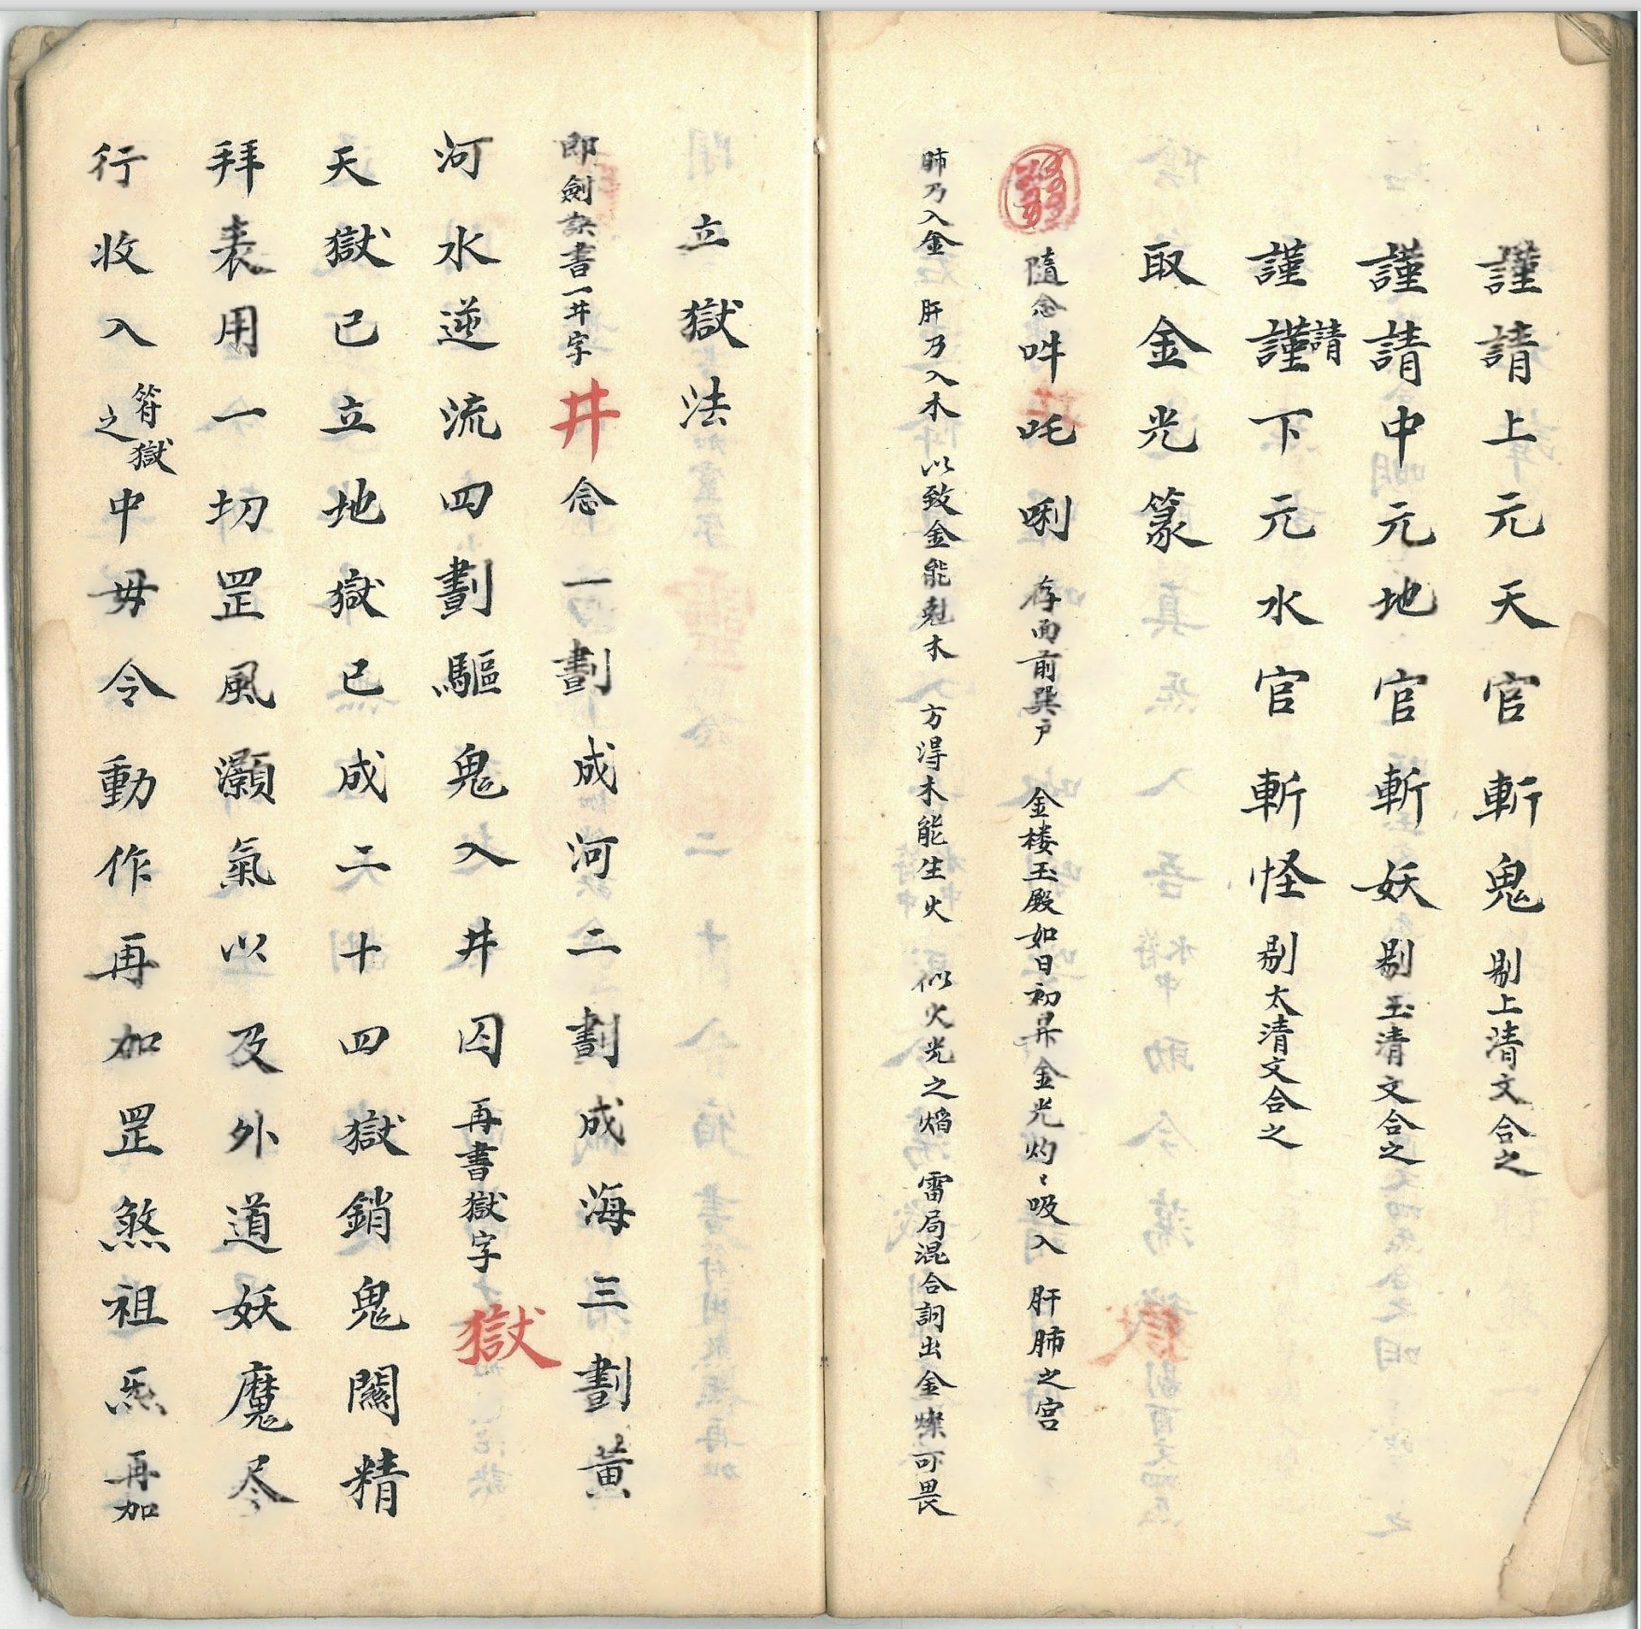 謹請上元天官斬鬼剔上清文合之
謹請中元地官斬妖剔玉清文合之
謹謹請下元水官斬怪剔太清文合之
取金光篆
隨念吽吒唎存面前巽户金楼玉殿如日初昇金光灼〻吸入肝肺之宮
肺乃入金肝乃入木以致金能剋木方得木能生火似火光之焰雷局混合訶出金燦可畏
立獄法
即劍訣書一井字井念一劃成河二劃成海三劃黃
河水逆流四劃驅鬼入井囚再書獄字獄
天獄已立地獄已成二十四獄銷鬼關精
拜表用一切罡風灝氣以及外道妖魔尽
行收入符獄之中毋令動作再加罡煞祖炁再加